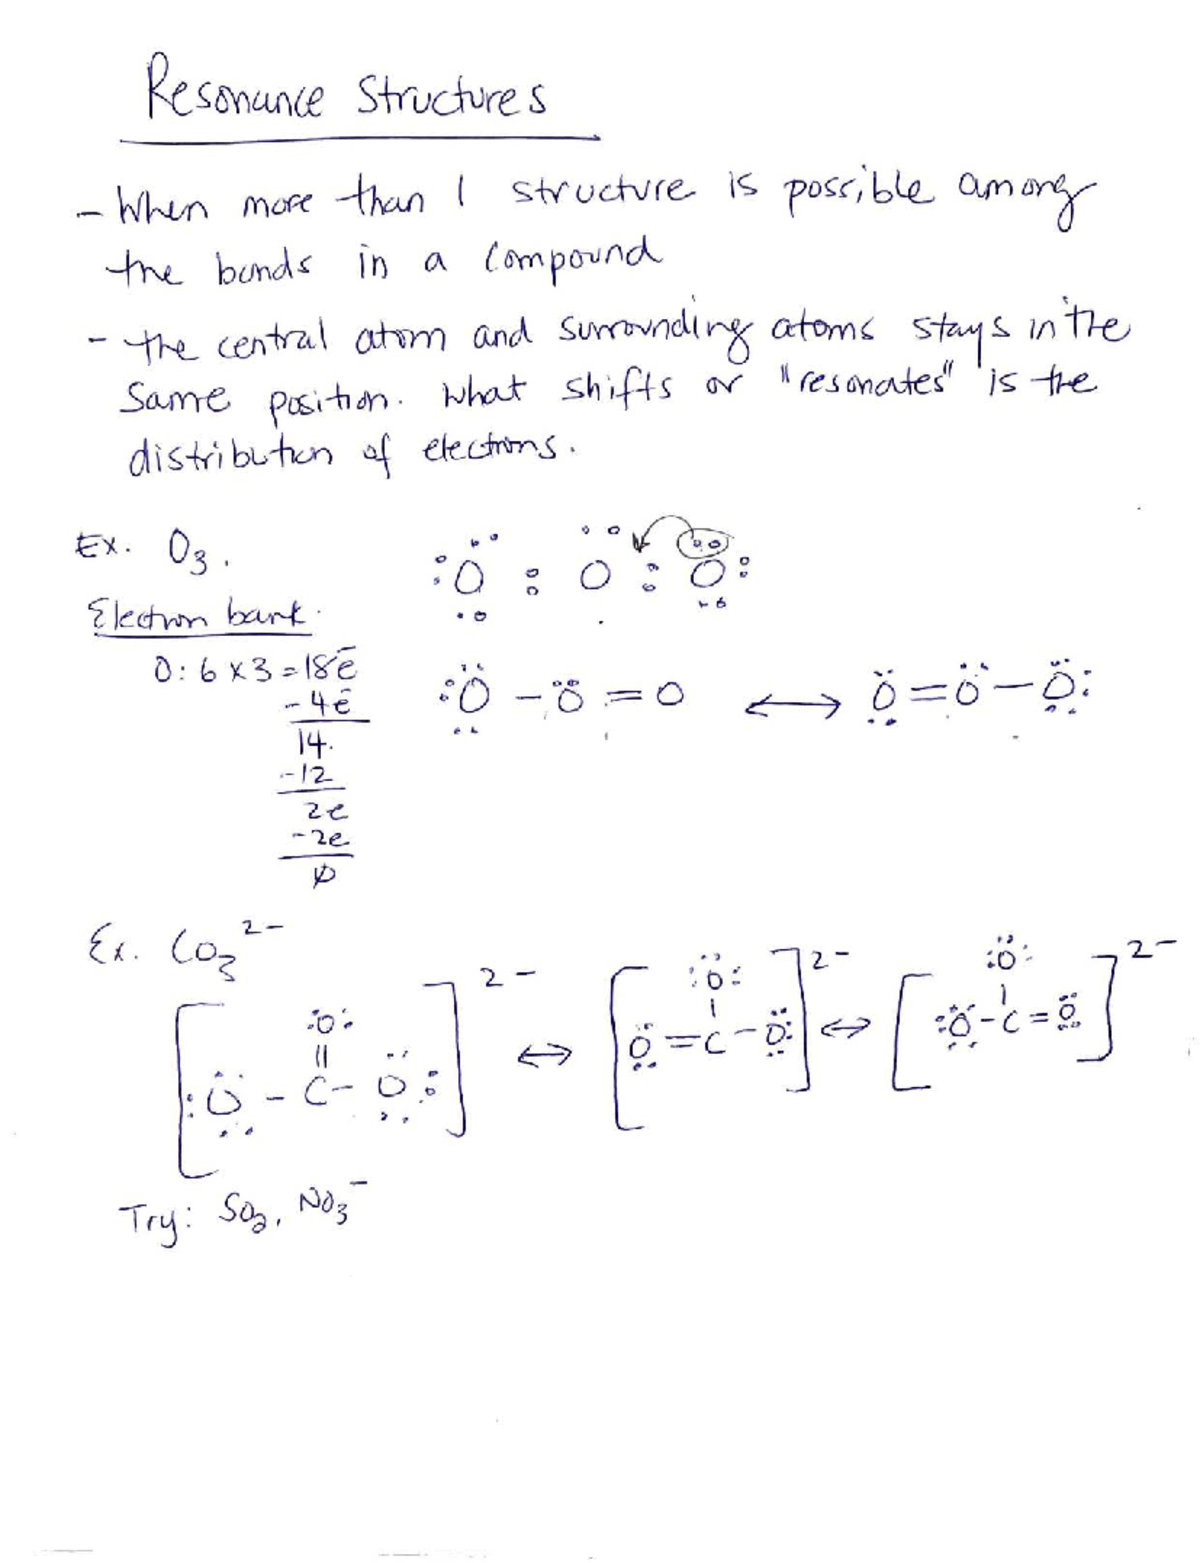 Resonance Structures
- When more than 1 structure is possible among
the bonds in a compound
- the central atom and surrounding atoms stays in the
same position. What shifts or "resonates" is the
distribution of electrons.
Ex. O₃.
:O : O : O:
Electron bank.
O: 6 x 3 = 18e⁻
- 4e⁻
14.
-12
2e
-2e
0
:O - O = O ⟷ O = O - O:
Ex. CO₃²⁻
[:O - C - O: || :O:]²⁻ ⟷ [O = C - O: | :O:]²⁻ ⟷ [:O - C = O | :O:]²⁻
Try: SO₂, NO₃⁻